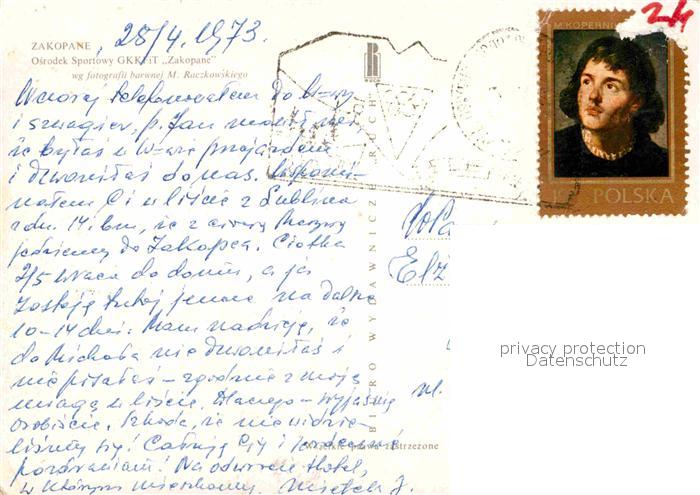 ZAKOPANE, 28/4. 1973.
Ośrodek Sportowy GKKFiT „Zakopane"
wg fotografii barwnej M. Raczkowskiego
Wczoraj telefonowałem do W-wy
i szwagier, p. Jan mówił mi,
że byłaś w W-wie przejazdem
i dzwoniłaś do nas. Wspomi-
nałem Ci w liście z Lublina
z dn. 14. bm, że z
jedziemy do Zakopca. Ciotka
2/5 wraca do domu, a ja
zostaję tutaj jeszcze na dalsze
10-14 dni. Mam nadzieję, że
do Michała nie dzwoniłaś i
nie pisałaś - zgodnie z moją
uwagą w liście. Dlaczego - wyjaśnię
osobiście. Szkoda, że nie widzie-
liśmy się! Całuję Cię i serdecznie
pozdrawiam! Na odwrocie Hotel,
w którym mieszkamy. Mietek J.
BIURO WYDAWNICZE RUCH
RUCH
Wszelkie prawa zastrzeżone
M. KOPERNIK
POLSKA
24
Elż
ul.
privacy protection
Datenschutz